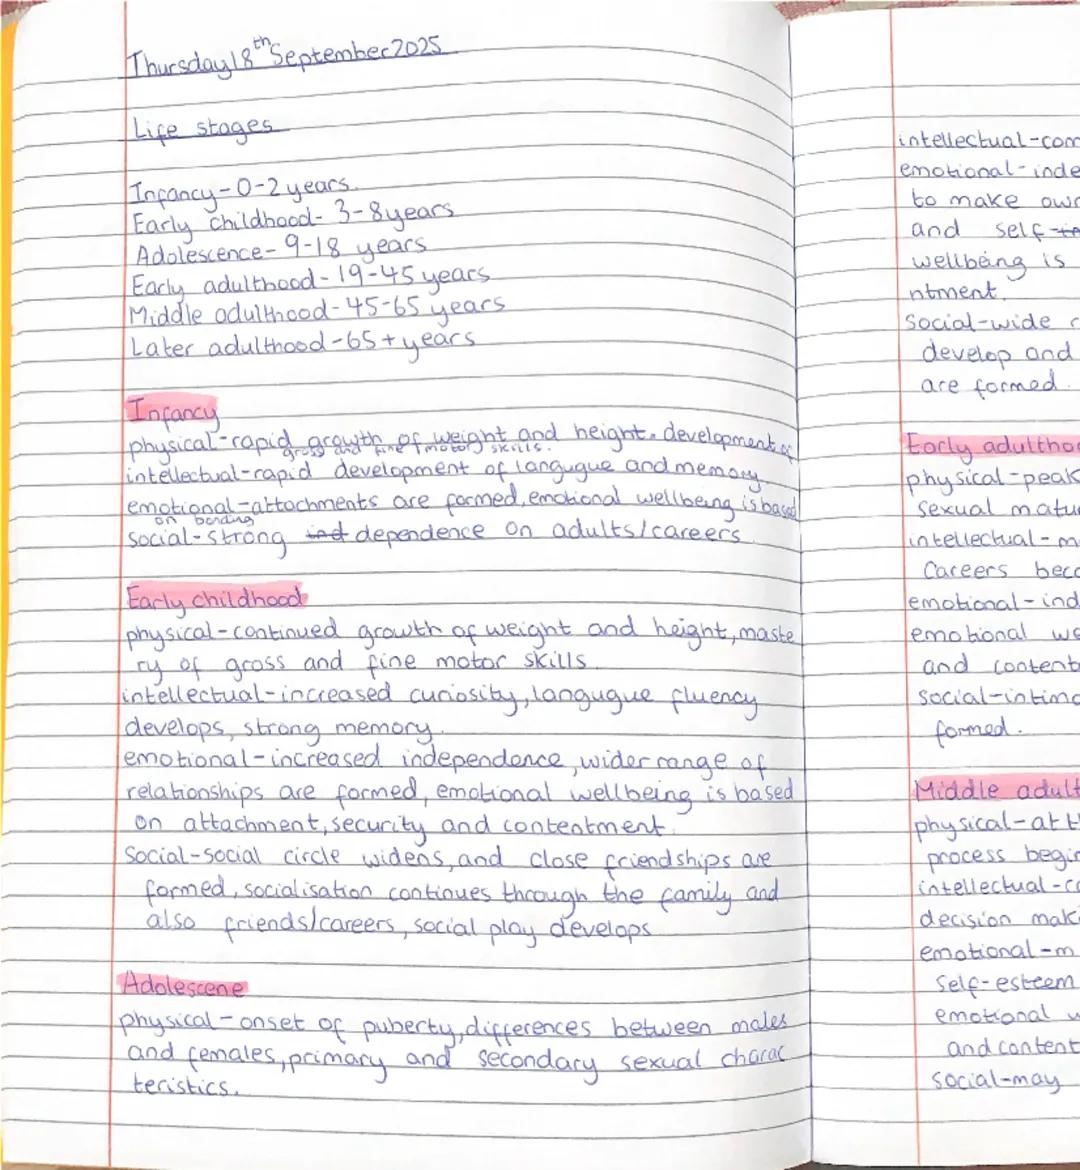 Thursday 18th September 2025
Life stages
Infancy - 0-2 years.
Early childhood - 3-8 years
Adolescence - 9-18 years
Early adulthood - 19-45 years
Middle adulthood - 45-65 years
Later adulthood - 65+ years
Infancy
physical - rapid growth of weight and height. development of
gross and fine (motor) skills.
intellectual - rapid development of langugue and memory
emotional - attachments are formed, emotional wellbeing is based
on bonding
social - strong ind dependence on adults/careers
Early childhood
physical - continued growth of weight and height, maste
ry of gross and fine motor skills
intellectual - increased curiosity, langugue fluency
develops, strong memory.
emotional - increased independence, wider range of
relationships are formed, emotional wellbeing is based
on attachment, security and contentment.
Social - social circle widens, and close friendships are
formed, socialisation continues through the family and
also friends/careers, social play develops
Adolescene
physical - onset of puberty, differences between males
and females, primary and secondary sexual charac
teristics.
intellectual - com
emotional - inde
to make own
and self-
wellbeing is
ntment.
Social - wide
develop and
are formed.
Early adulthoo
physical - peak
sexual matu
intellectual - m
Careers beco
emotional - ind
emotional we
and content
social - intima
formed.
Middle adult
physical - at t
process begin
intellectual - co
decision maki
emotional - m
self-esteem
emotional w
and content
social - may